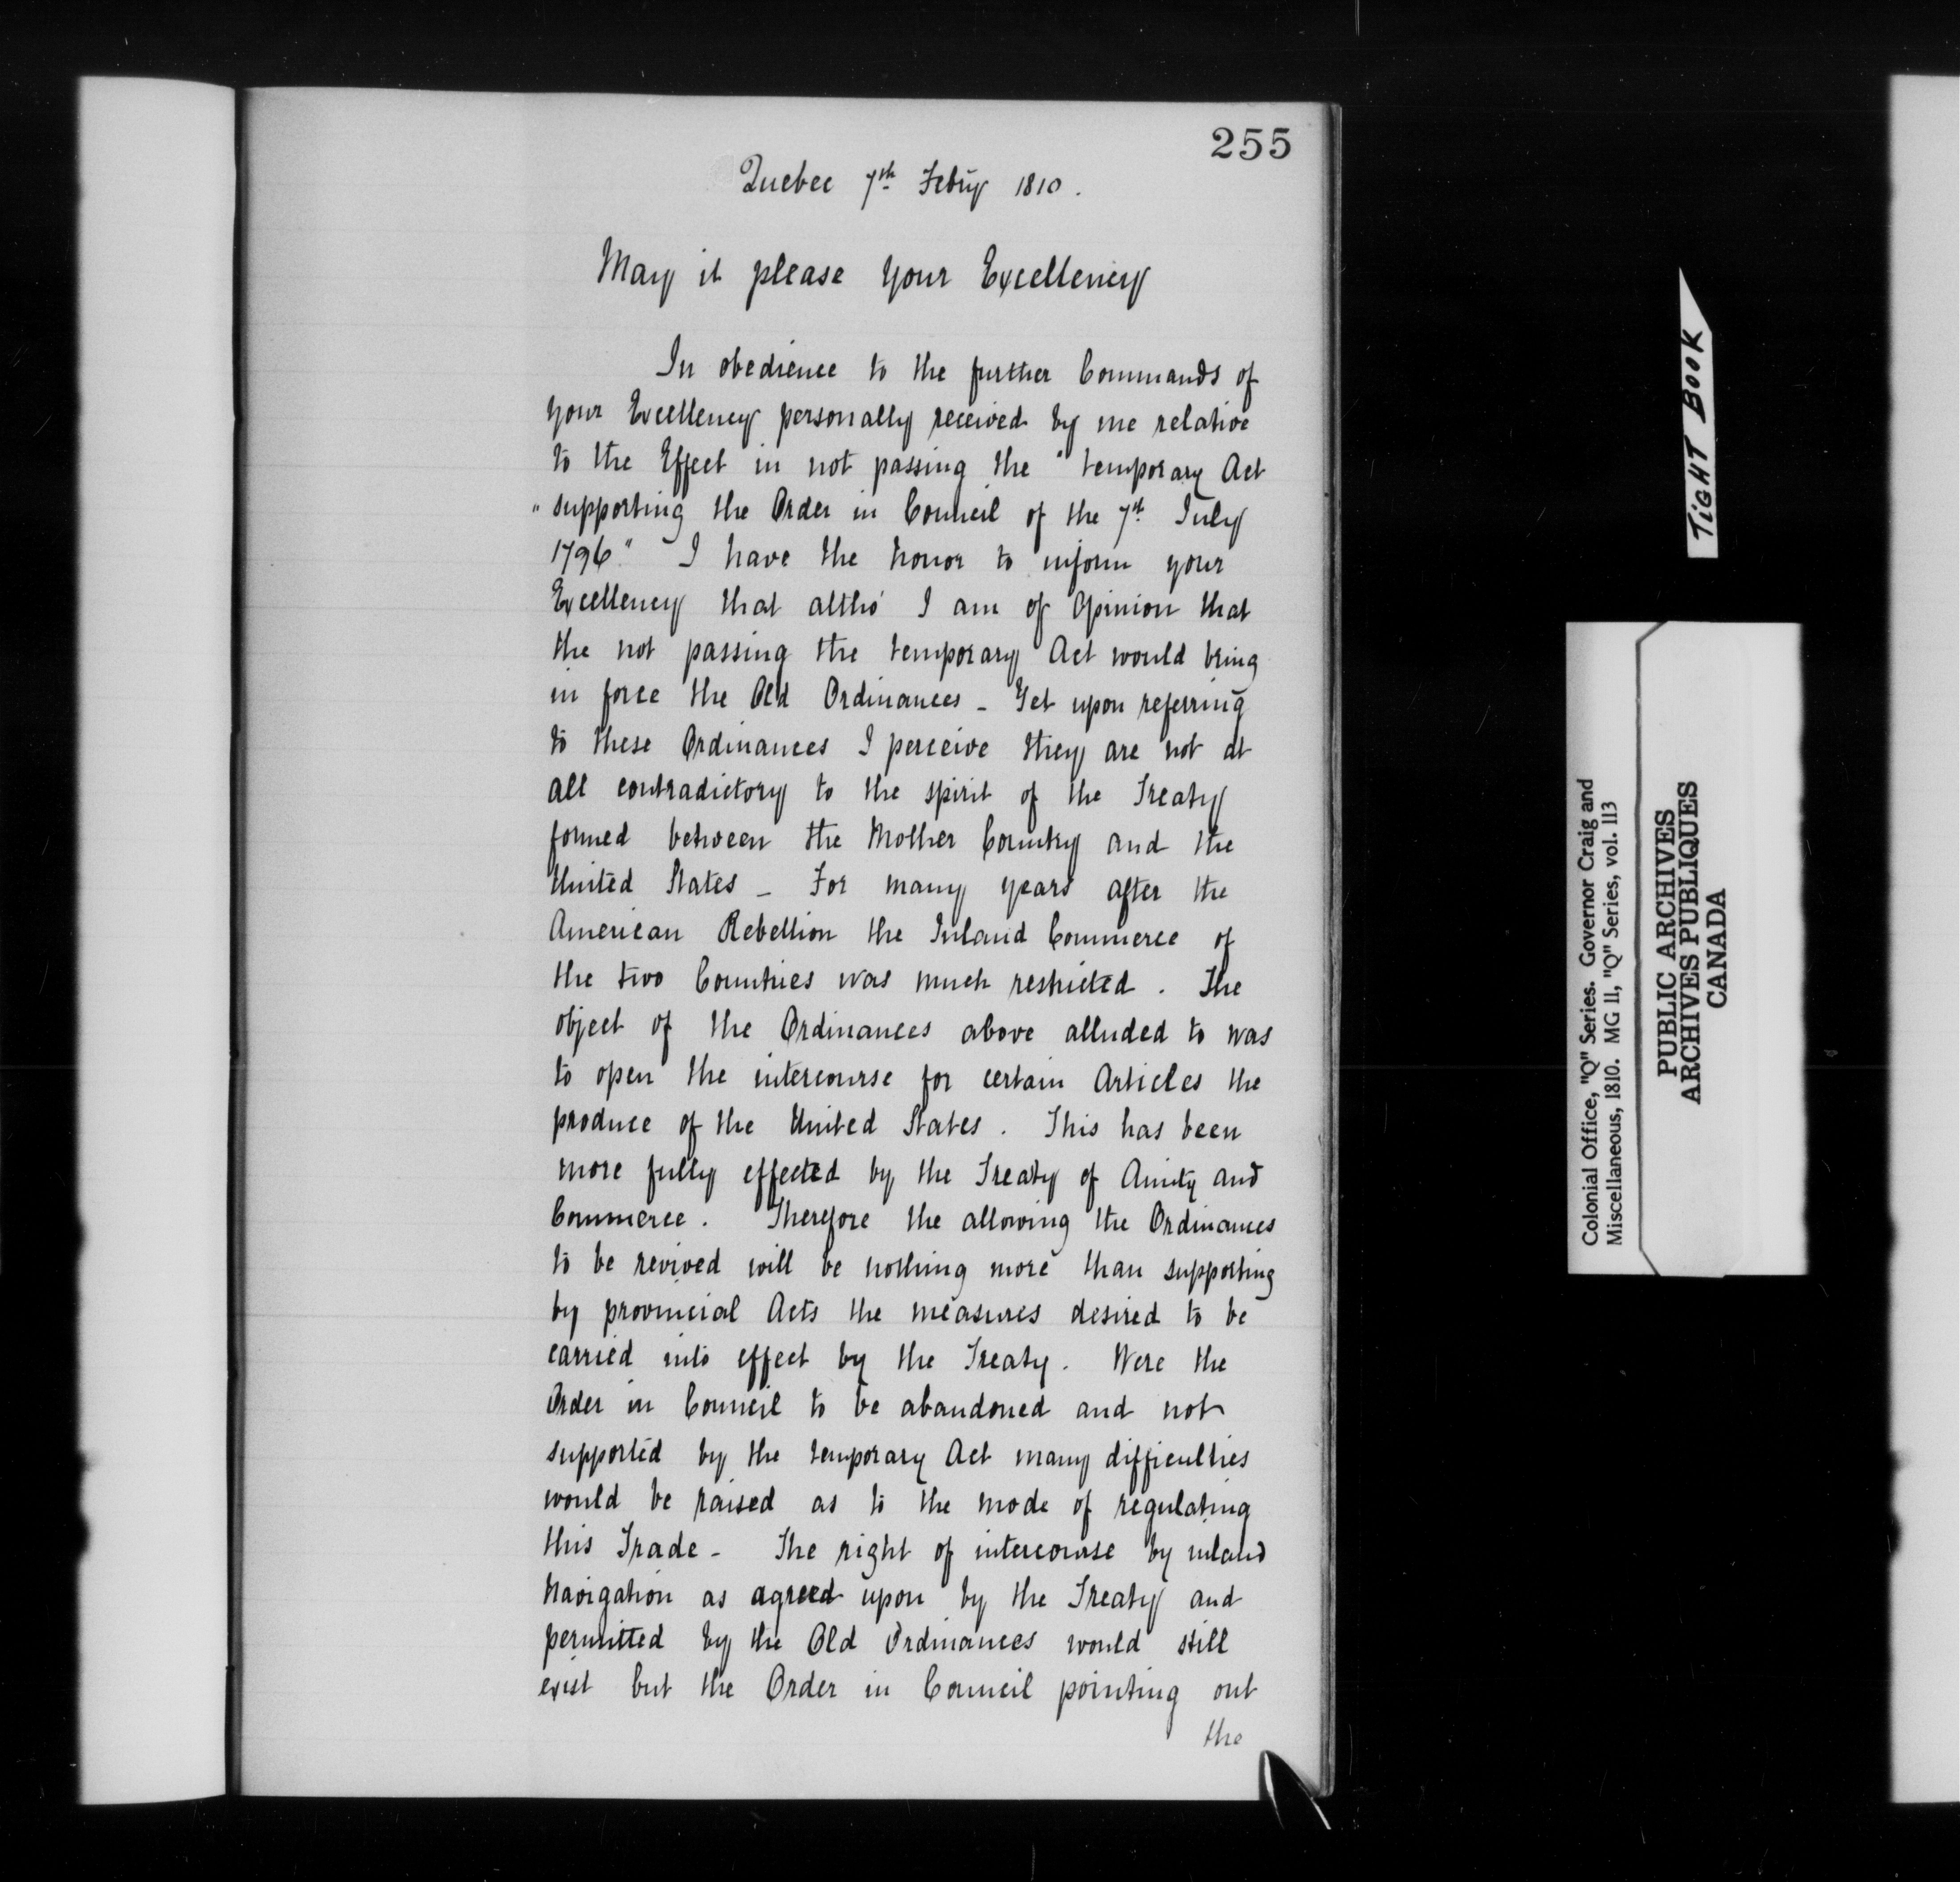 255
Quebec 7th Febry 1810.
May it please your Excellency
In obedience to the further Commands of
your Excellency personally received by me relative
to the Effect in not passing the "temporary Act
"supporting the Order in Council of the 7th July
1796." I have the honor to inform your
Excellency that altho' I am of Opinion that
the not passing the temporary Act would bring
in force the Old Ordinances - Yet upon referring
to these Ordinances I perceive they are not at
all contradictory to the spirit of the Treaty
formed between the Mother Country and the
United States - For many years after the
American Rebellion the Inland Commerce of
the two Countries was much restricted. The
object of the Ordinances above alluded to was
to open the intercourse for certain Articles the
produce of the United States. This has been
more fully effected by the Treaty of Amity and
Commerce. Therefore the allowing the Ordinances
to be revived will be nothing more than supporting
by provincial Acts the measures desired to be
carried into effect by the Treaty. Were the
Order in Council to be abandoned and not
supported by the temporary Act many difficulties
would be raised as to the mode of regulating
this Trade - The right of intercourse by inland
Navigation as agreed upon by the Treaty and
permitted by the Old Ordinances would still
exist but the Order in Council pointing out
the
TIGHT BOOK
Colonial Office, "Q" Series. Governor Craig and
Miscellaneous, 1810. MG 11, "Q" Series, vol. 113
PUBLIC ARCHIVES
ARCHIVES PUBLIQUES
CANADA